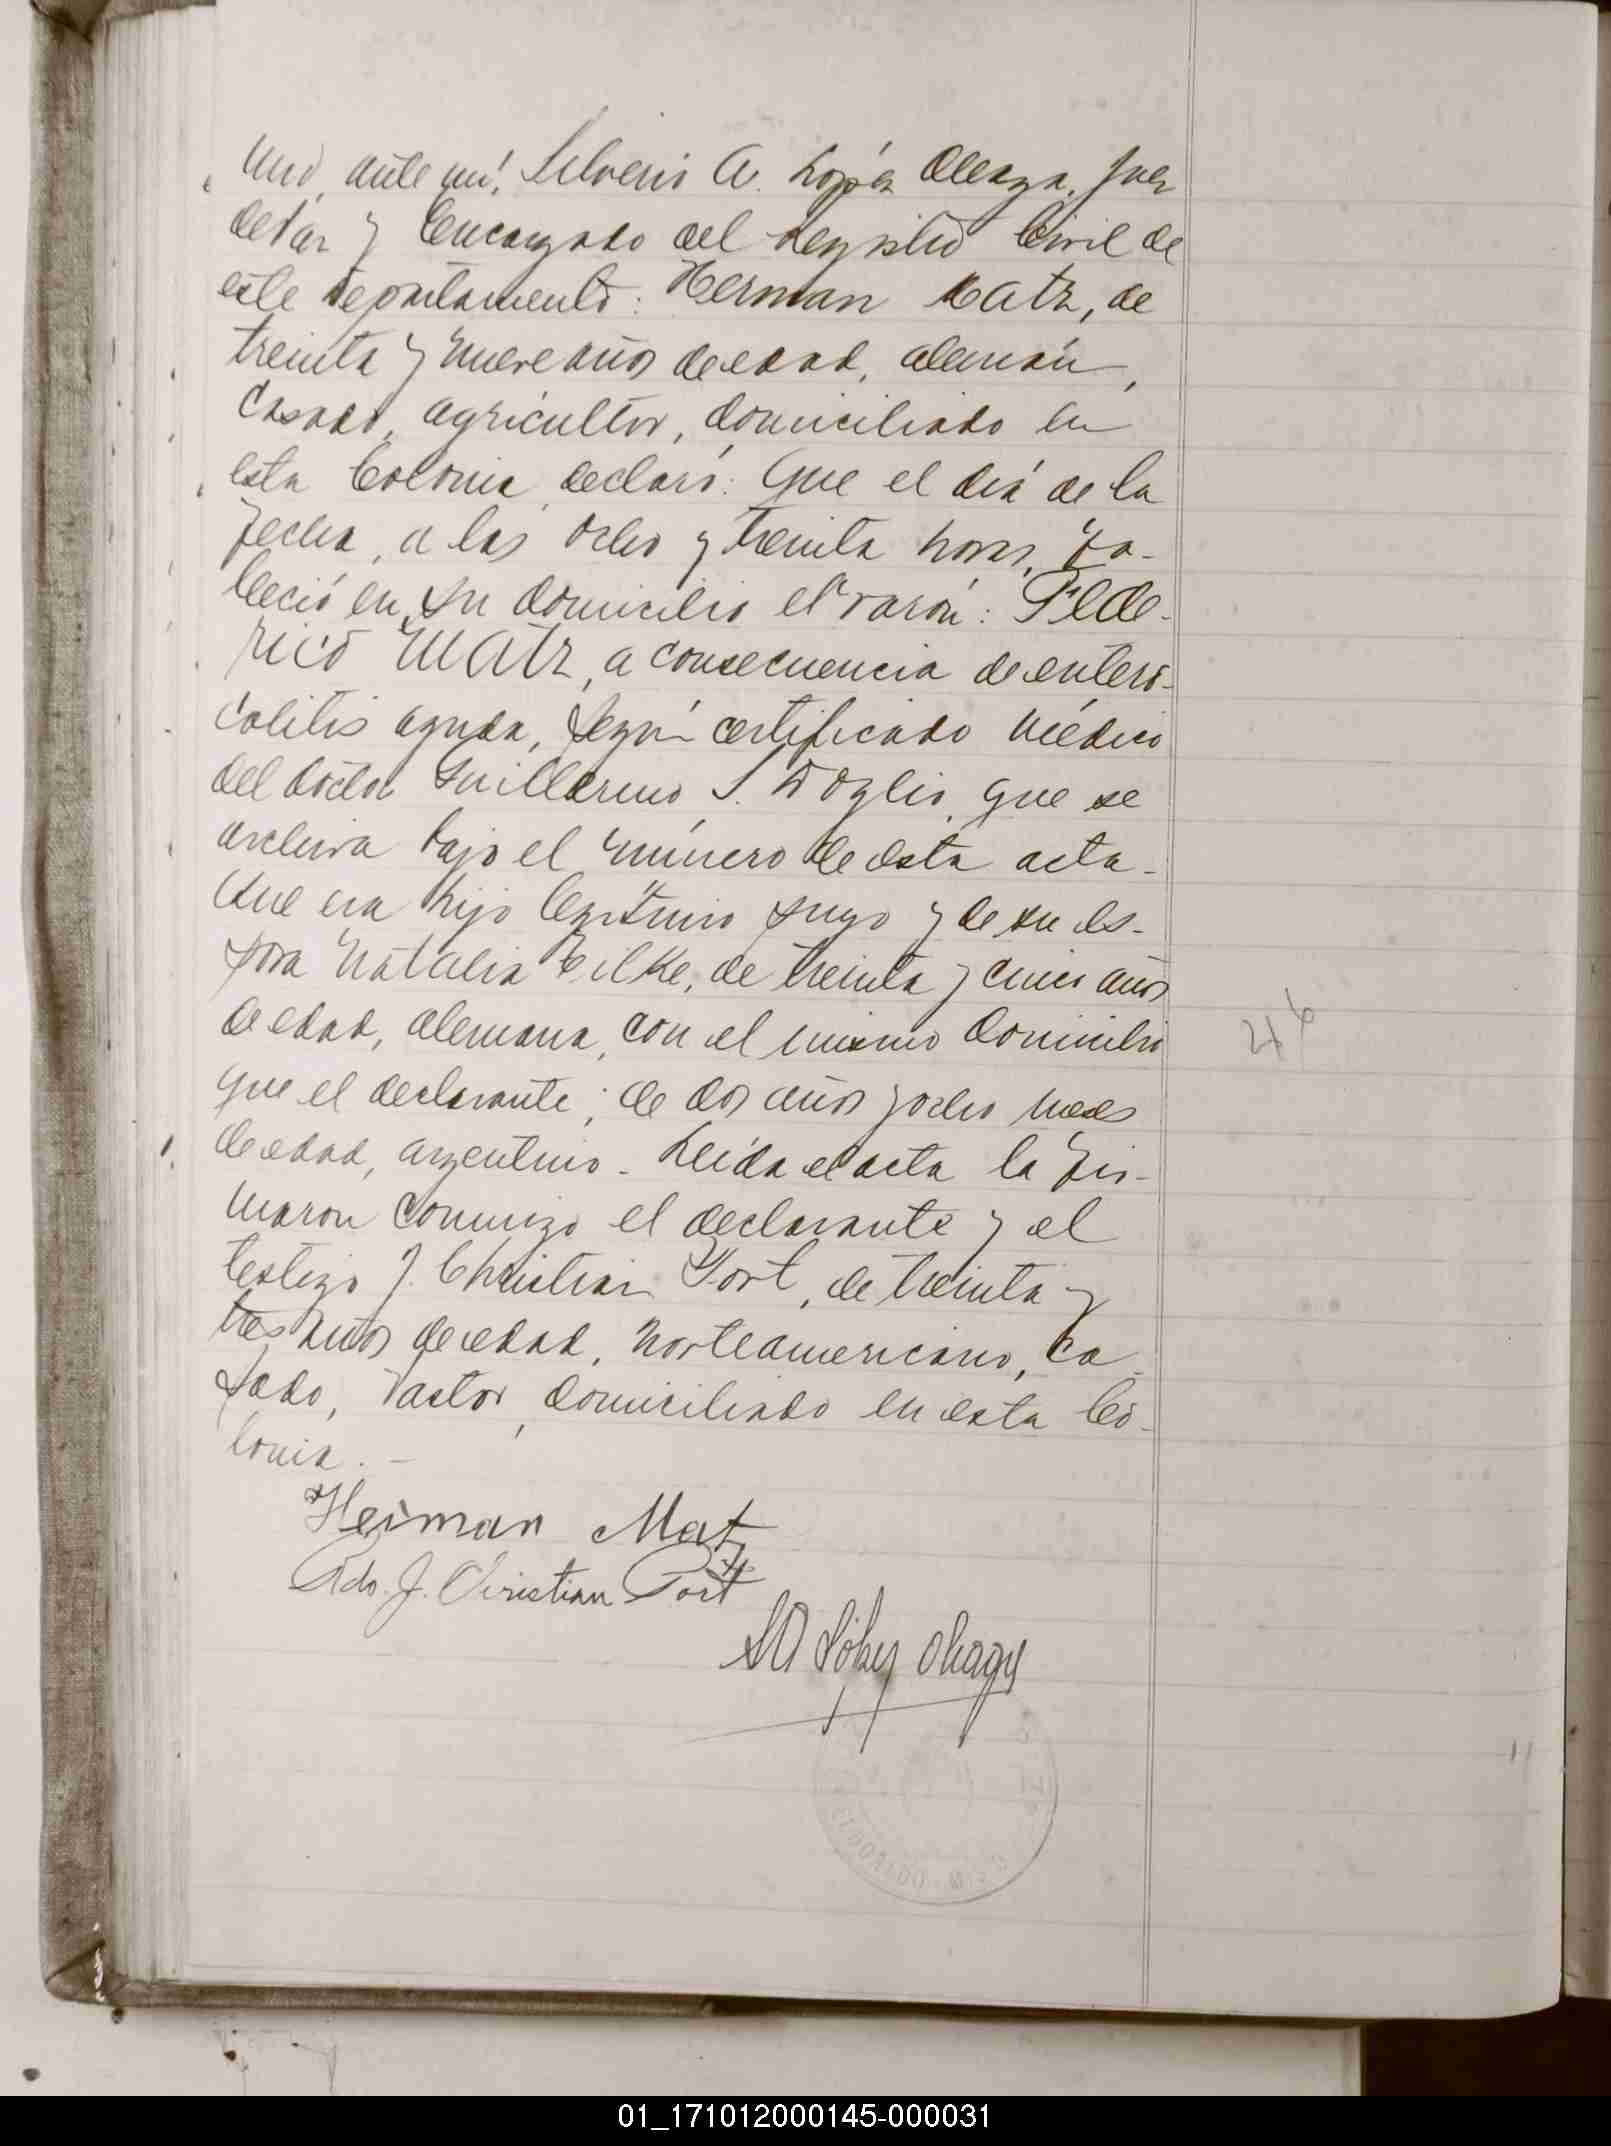 uno, ante mí, Silverio A. López Oleaga, Juez
de Paz y Encargado del Registro Civil de
este departamento: Herman Matz, de
treinta y nueve años de edad, alemán,
casado, agricultor, domiciliado en
esta Colonia, declaró: Que el día de la
fecha, a las ocho y treinta horas, fa-
lleció en su domicilio el varón: Fede-
rico Matz, a consecuencia de entero-
colitis aguda, según certificado médico
del doctor Guillermo S. Doglio, que se
archiva bajo el número de esta acta-
Que era hijo legítimo suyo y de su es-
posa Natalia Eilke, de treinta y cinco años
de edad, alemana, con el mismo domicilio
que el declarante; de dos años y ocho meses
de edad, argentino- Leída el acta la fir-
maron conmigo el declarante y el
testigo J. Christian Port, de treinta y
tres años de edad, norteamericano, ca-
sado, Pastor, domiciliado en esta Co-
lonia.-
Herman Matz
Rdo. J. Christian Port
SA López
46
ELDORADO
01_171012000145-000031